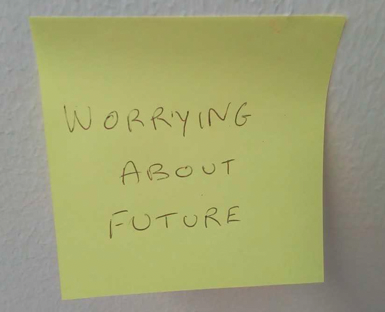 WORRYING
ABOUT
FUTURE